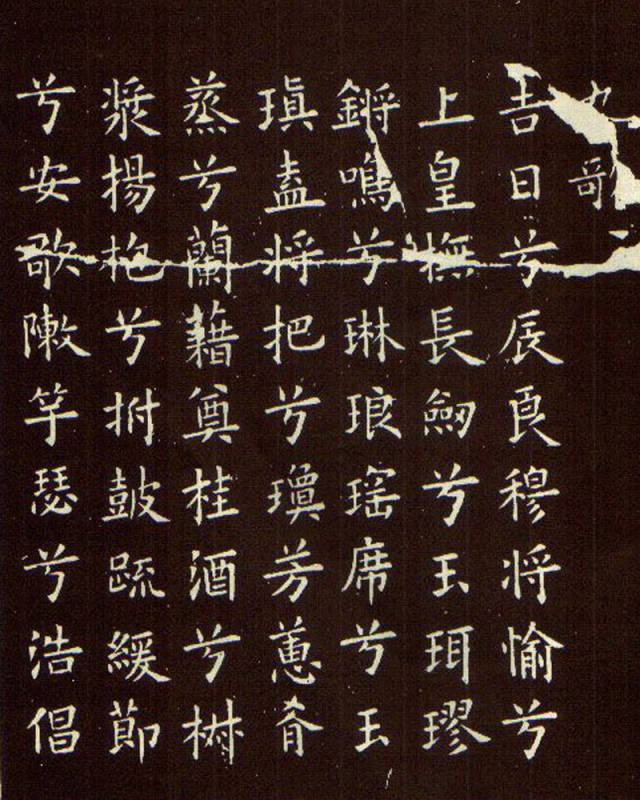 九歌
吉日兮辰良穆将愉兮
上皇撫長劒兮玉珥璆
鏘鳴兮琳琅瑶席兮玉
瑱盍将把兮瓊芳蕙肴
蒸兮蘭藉奠桂酒兮椒
漿揚枹兮拊鼓疏緩節
兮安歌陳竽瑟兮浩倡